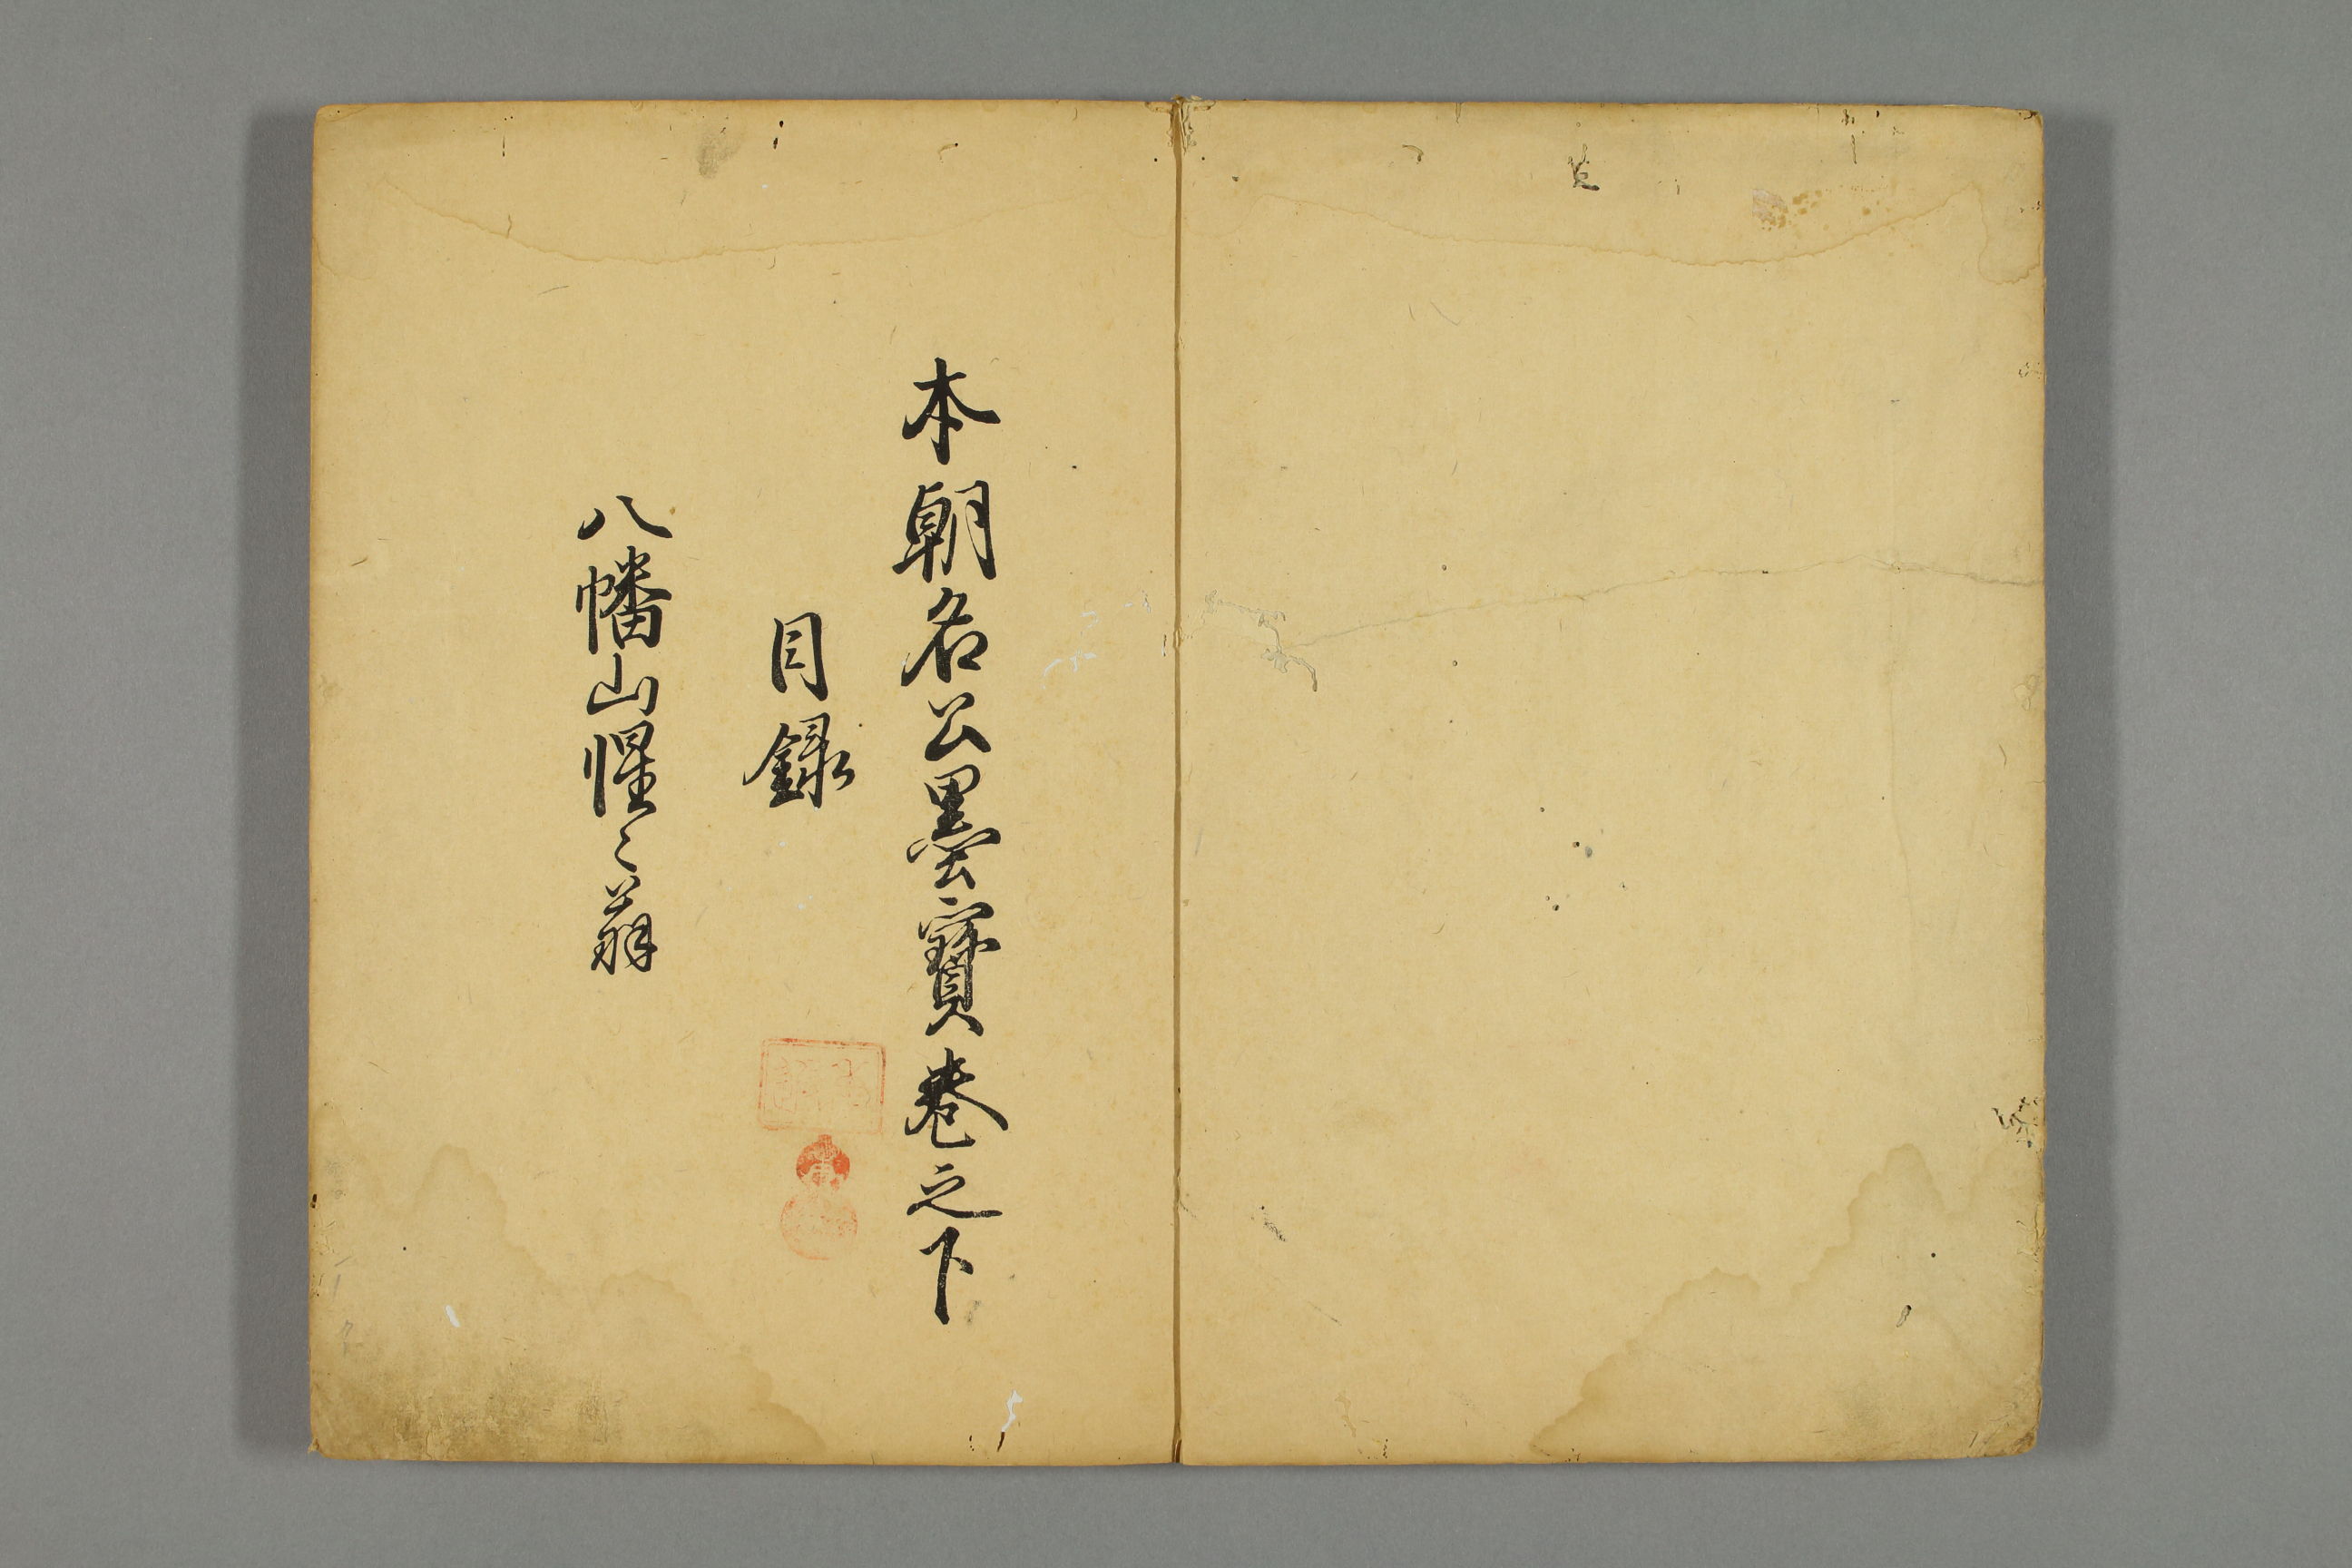 本朝名公墨寶卷之下
目録
八幡山惺々翁